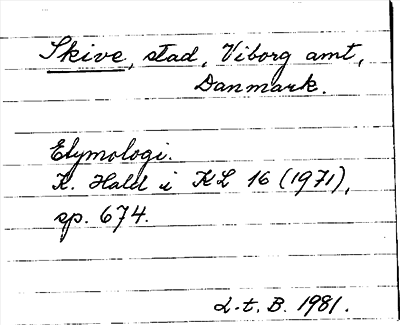 Skive, stad, Viborg amt,
Danmark.
Etymologi.
K. Hald i KL 16 (1971),
sp. 674.
L.t. B. 1981.